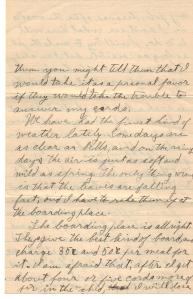 them you might tell them that I
would take it as a personal favor
if they would take the trouble to
answer my cards.
We have had the finest kind of
weather lately. Some days are
as clear as bells, and on the rainy
days the air is just as soft and
mild as spring. The only thing wrong
is that the leaves are falling
fast, and I have to rake them up at
the boarding place.
The boarding place is all right.
They give the best kind of board and
charge 35¢ and 50¢ per meal for
it. I am afraid that, after I get
about four or five cords more of
for in the I will lose